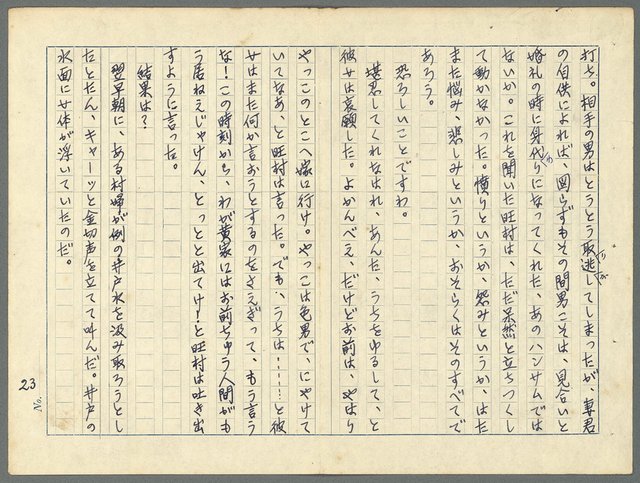 打ち。相手の男はとうとう取逃してしまったが、妻君
の自供によれば、図らずもその間男こそは、見合いと
婚礼の時に身代りになってくれた、あのハンサムでは
ないか。これを聞いた旺村は、ただ呆然と立ちつくし
て動かなかった。憤りというか、怨みというか、はた
また悩み、悲しみというか、おそらくはそのすべてで
あろう。
恐ろしいことですわ。
堪忍してくれなはれ、あんた、うちをゆるして、と
彼女は哀願した。よかんべえ、だけどお前は、やはり
やっこのとこへ嫁に行け。やっこは色男で、にやけて
いてなあ、と旺村は言った。でも、うちは………と彼
女はまた何か言おうとするのをさえぎって、もう言う
な！この時刻から、わが黄家にはお前ちゅう人間がも
う居ねえじゃけん、とっとと出てけ！と旺村は吐き出
すように言った。
結果は？
翌早朝に、ある村婦が例の井戸水を汲み取ろうとし
たとたん、キャーッと金切声を立てて叫んだ。井戸の
水面に女体が浮いていたのだ。
No. 23